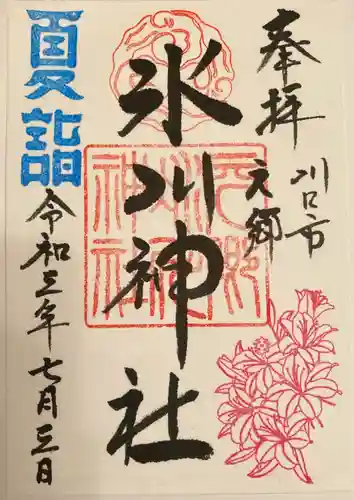 奉拝
川口市
元郷
氷川神社
夏詣
令和三年七月三日